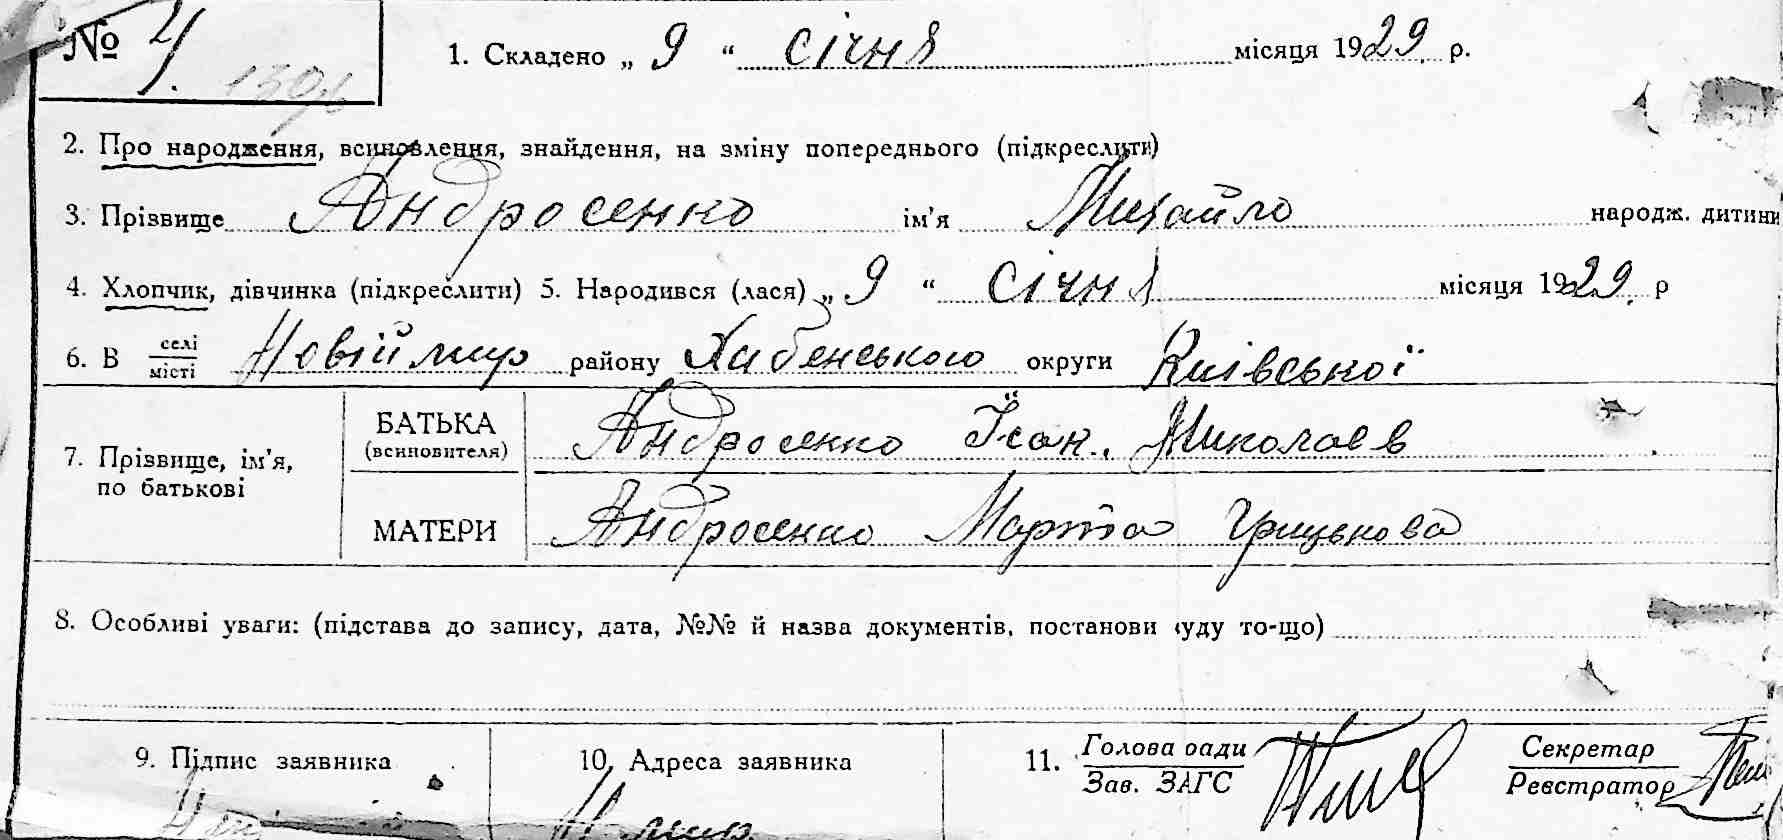 № 4.
1. Складено „ 9 “ січня місяця 1929 р.
2. Про народження, всиновлення, знайдення, на зміну попереднього (підкреслити)
3. Прізвище Андросенко ім'я Михайло народж. дитини
4. Хлопчик, дівчинка (підкреслити) 5. Народився (лася) „ 9 “ січня місяця 1929. р
6. В селі місті Новій мир району Хабенського округи Київської
7. Прізвище, ім'я, по батькові
БАТЬКА (всиновителя) Андросенко Іван. Миколаєв
МАТЕРИ Андросенко Марта Грицькова
8. Особливі уваги: (підстава до запису, дата, №№ й назва документів, постанови суду то-що)
9. Підпис заявника 10. Адреса заявника 11. Голова ради Зав. ЗАГС Секретар Реєстратор
Н мир